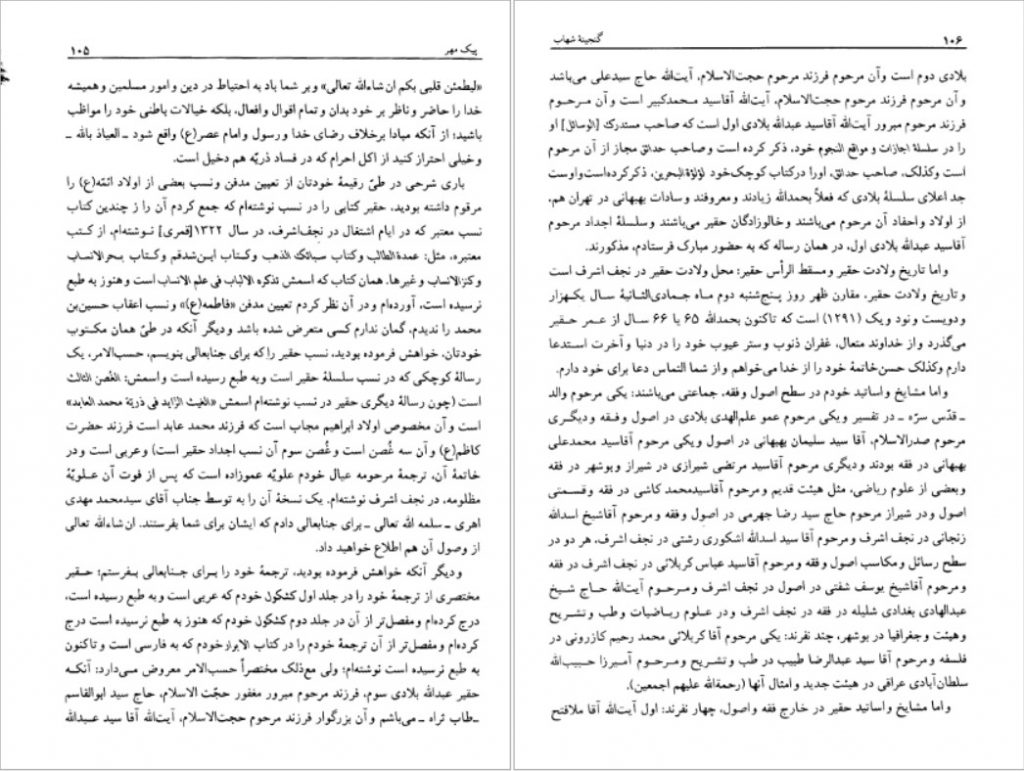 پیک مهر ۱۰۵
«لیطمئن قلبی بکم ان شاءالله تعالی» و بر شما باد به احتیاط در دین و امور مسلمین و همیشه
خدا را حاضر و ناظر بر خود بدان و تمام اقوال و افعال، بلکه خیالات باطنی خود را مواظب
باشید؛ از آنکه مبادا برخلاف رضای خدا و رسول و امام عصر(ع) واقع شود ـ العیاذ بالله ـ
و خیلی احتراز کنید از اکل احرام که در فساد ذریّه هم دخیل است.
باری شرحی در طیّ رقیمۀ خودتان از تعیین مدفن و نسب بعضی از اولاد ائمّه(ع) را
مرقوم داشته بودید، حقیر کتابی را در نسب نوشته‌ام که جمع کردم آن را ز چندین کتاب
نسب معتبر که در ایام اشتغال در نجف‌اشرف، در سال ۱۳۲۲[قمری] نوشته‌ام، از کتب
معتبره، مثل: عمدةالطالب و کتاب سبائک الذهب و کتاب ابن‌شدقم و کتاب بحرالانساب
و کنزالانساب و غیرها. همان کتاب که اسمش تذکره الألباب في علم الانساب است و هنوز به طبع
نرسیده است، آورده‌ام و در آن نظر کردم تعیین مدفن «فاطمه(ع)» و نسب اعقاب حسین‌بن
محمد را ندیدم، گمان ندارم کسی متعرض شده باشد و دیگر آنکه در طیّ همان مکتوب
خودتان، خواهش فرموده بودید، نسب حقیر را که برای جنابعالی بنویسم، حسب‌الامر، یک
رسالۀ کوچکی که در نسب سلسلۀ حقیر است و به طبع رسیده است و اسمش: الغُصن الثالث
است (چون رسالۀ دیگری حقیر در نسب نوشته‌ام اسمش «الغیث الزّاید في ذریّة محمد العابد»
است و آن مخصوص اولاد ابراهیم مجاب است که فرزند محمد عابد است فرزند حضرت
کاظم(ع) و آن سه غُصن است و غُصن سوم آن نسب اجداد حقیر است) و عربی است و در
خاتمۀ آن، ترجمۀ مرحومه عیال خودم علویّه عموزاده است که پس از فوت آن علویّۀ
مظلومه، در نجف اشرف نوشته‌ام. یک نسخۀ آن را به توسط جناب آقای سیدمحمد مهدی
اهری ـ سلمه الله تعالی ـ برای جنابعالی دادم که ایشان برای شما بفرستند. ان شاءالله تعالی
از وصول آن هم اطلاع خواهید داد.
و دیگر آنکه خواهش فرموده بودید، ترجمۀ خود را برای جنابعالی بفرستم؛ حقیر
مختصری از ترجمۀ خود را در جلد اول کشکول خودم که عربی است و به طبع رسیده است،
درج کرده‌ام و مفصل‌تر از آن در جلد دوم کشکول خودم که هنوز به طبع نرسیده است درج
کرده‌ام و مفصل‌تر از آن ترجمۀ خودم را در کتاب الابرار خودم که به فارسی است و تاکنون
به طبع نرسیده است نوشته‌ام؛ ولی مع‌ذلک مختصراً حسب‌الامر معروض می‌دارد: آنکه
حقیر عبدالله بلادی سوم، فرزند مرحوم مبرور مغفور حجّت الاسلام، حاج سید ابوالقاسم
ـ طاب ثراه ـ می‌باشم و آن بزرگوار فرزند مرحوم حجت‌الاسلام، آیت‌الله آقا سید عبدالله
گنجینۀ شهاب ۱۰۶
بلادی دوم است و آن مرحوم فرزند مرحوم حجت‌الاسلام، آیت‌الله حاج سیدعلی می‌باشد
و آن مرحوم فرزند مرحوم حجت‌الاسلام، آیت‌الله آقاسید محمدکبیر است و آن مرحوم
فرزند مرحوم مبرور آیت‌الله آقاسید عبدالله بلادی اول است که صاحب مستدرک [الوسائل] او
را در سلسلۀ اجازات و مواقع النجوم خود، ذکر کرده است و صاحب حدائق مجاز از آن مرحوم
است و کذلک، صاحب حدائق، او را در کتاب کوچک خود لؤلؤةالبحرین، ذکر کرده است و اوست
جد اعلای سلسلۀ بلادی که فعلاً بحمدالله زیادند و معروفند و سادات بهبهانی در تهران هم،
از اولاد و احفاد آن مرحوم می‌باشند و خالوزادگان حقیر می‌باشند و سلسلۀ اجداد مرحوم
آقاسید عبدالله بلادی اول، در همان رساله که به حضور مبارک فرستادم، مذکورند.
و اما تاریخ ولادت حقیر و مسقط الرأس حقیر: محل ولادت حقیر در نجف اشرف است
و تاریخ ولادت حقیر، مقارن ظهر روز پنج‌شنبه دوم ماه جمادی‌الثانیۀ سال یکهزار
و دویست و نود و یک (۱۲۹۱) است که تاکنون بحمدالله ۶۵ یا ۶۶ سال از عمر حقیر
می‌گذرد و از خداوند متعال، غفران ذنوب و ستر عیوب خود را در دنیا و آخرت استدعا
دارم و کذلک حسن خاتمۀ خود را از خدا می‌خواهم و از شما التماس دعا برای خود دارم.
و اما مشایخ و اساتید خودم در سطح اصول و فقه، جماعتی می‌باشند: یکی مرحوم والد
ـ قدّس سرّه ـ در تفسیر و یکی مرحوم عمو علم‌الهدی بلادی در اصول و فقه و دیگری
مرحوم صدرالاسلام، آقا سید سلیمان بهبهانی در اصول و یکی مرحوم آقاسید محمدعلی
بهبهانی در فقه بودند و دیگری مرحوم آقاسید مرتضی شیرازی در شیراز و بوشهر در فقه
و بعضی از علوم ریاضی، مثل هیئت قدیم و مرحوم آقاسیدمحمد کاشی در فقه و قسمتی
اصول و در شیراز مرحوم حاج سید رضا جهرمی در اصول و فقه و مرحوم آقاشیخ اسدالله
زنجانی در نجف اشرف و مرحوم آقا سید اسدالله اشکوری رشتی در نجف اشرف، هر دو در
سطح رسائل و مکاسب اصول و فقه و مرحوم آقاسید عباس کربلائی در نجف اشرف در فقه
و مرحوم آقاشیخ یوسف شفتی در اصول در نجف اشرف و مرحوم آیت‌الله حاج شیخ
عبدالهادی بغدادی شلیله در فقه در نجف اشرف و در علوم ریاضیات و طب و تشریح
و هیئت و جغرافیا در بوشهر، چند نفرند: یکی مرحوم آقا کربلائی محمد رحیم کازرونی در
فلسفه و مرحوم آقا سید عبدالرضا طبیب در طب و تشریح و مرحوم آمیرزا حبیب‌الله
سلطان‌آبادی عراقی در هیئت جدید و امثال آنها (رحمةالله علیهم اجمعین).
و اما مشایخ و اساتید حقیر در خارج فقه و اصول، چهار نفرند: اول آیت‌الله آقا ملافتح